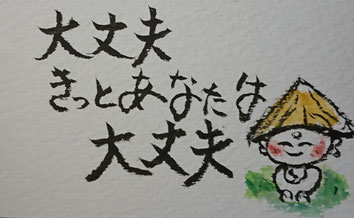 大丈夫
きっとあなたは
大丈夫